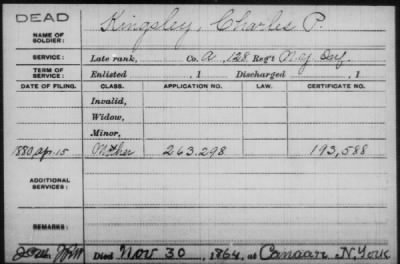 DEAD
NAME OF SOLDIER: Kingsley, Charles P.
SERVICE: Late rank, Co. A, 128 Reg't N.Y. Inf.
TERM OF SERVICE: Enlisted , 1 Discharged , 1
DATE OF FILING. CLASS. APPLICATION NO. LAW. CERTIFICATE NO.
Invalid,
Widow,
Minor,
1880 Ap. 15 Mother 263.298 193,588
ADDITIONAL SERVICES:
REMARKS:
Died Nov. 30, 1864, at Canaan N. York